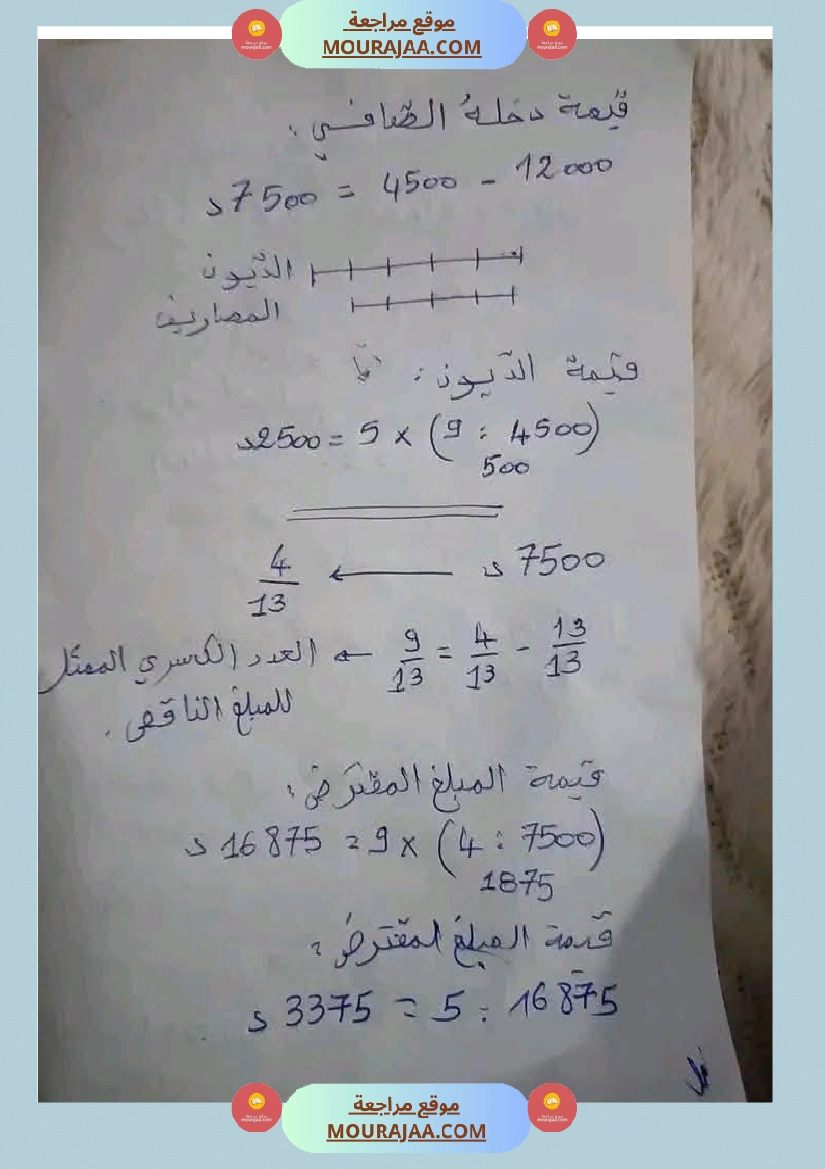 موقع مراجعة
MOURAJAA.COM
قيمة دخله الصّافي :
12000 - 4500 = 7500 د
الدّيون
المصاريف
قيمة الدّيون :
(4500 : 9) × 5 = 2500 د
500
7500 د ← 4/13
13/13 - 4/13 = 9/13 ← العدد الكسري الممثل
للمبلغ الناقص .
قيمة المبلغ المقترض :
(7500 : 4) × 9 = 16875 د
1875
قيمة المبلغ لمقترض :
16875 : 5 = 3375 د
موقع مراجعة
MOURAJAA.COM